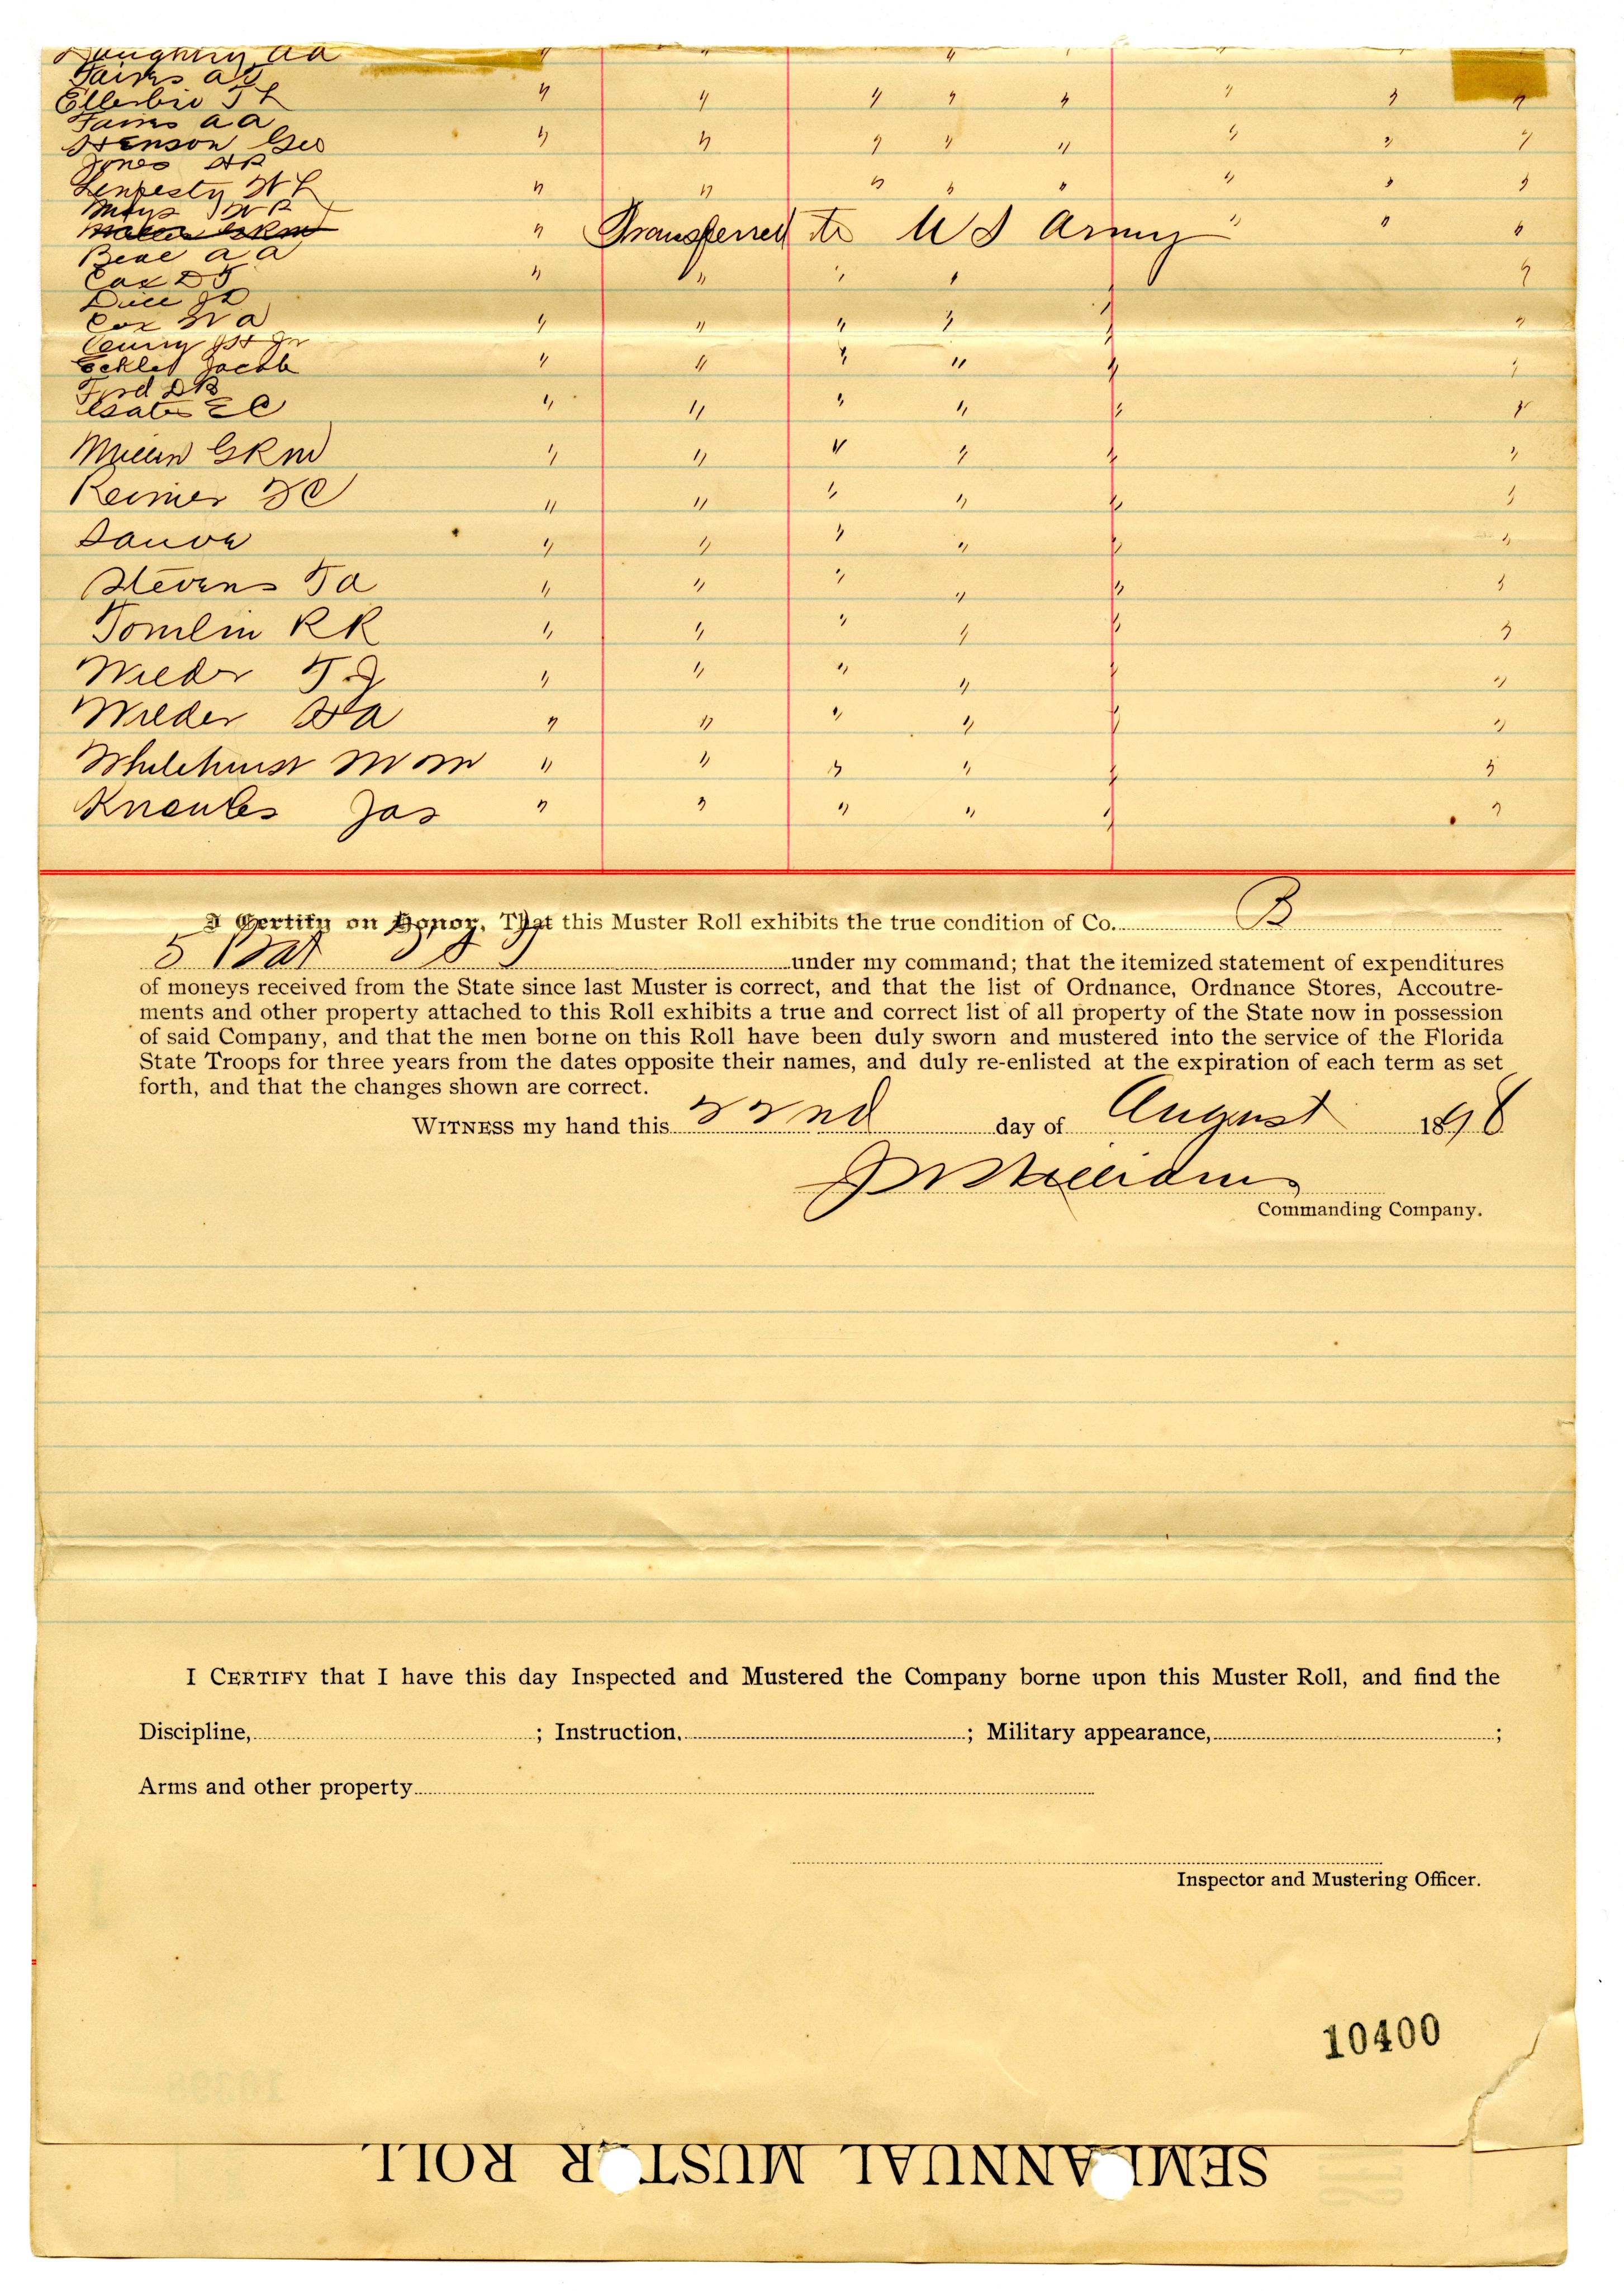 A A
A J
Ellerbie T L
A A
Henson Geo
Jones H R
W L
Mays W R
G R M " Transferred to U S Army " " "
Beal A A
Cox D T
Dice J D
Cox W A
Curry J H Jr
Eckles Jacob
Ford D B
Gates E C
G R M
Reimer F C
Sauva
Stevens T A
Tomlin R R
Wilder T J
Wilder H A
Whitehurst M M
Knowles Jas
I Certify on Honor, That this Muster Roll exhibits the true condition of Co. B
5 Bat F S T under my command; that the itemized statement of expenditures
of moneys received from the State since last Muster is correct, and that the list of Ordnance, Ordnance Stores, Accoutre-
ments and other property attached to this Roll exhibits a true and correct list of all property of the State now in possession
of said Company, and that the men borne on this Roll have been duly sworn and mustered into the service of the Florida
State Troops for three years from the dates opposite their names, and duly re-enlisted at the expiration of each term as set
forth, and that the changes shown are correct.
WITNESS my hand this 22nd day of August 1898
J W Williams
Commanding Company.
I CERTIFY that I have this day Inspected and Mustered the Company borne upon this Muster Roll, and find the
Discipline, ; Instruction, ; Military appearance, ;
Arms and other property
Inspector and Mustering Officer.
10400
SEMI-ANNUAL MUSTER ROLL